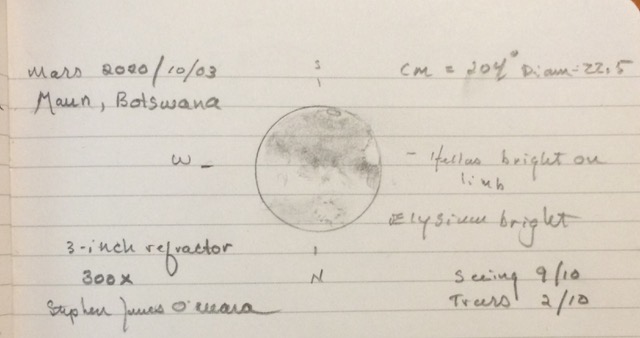 Mars 2020/10/03
S
CM = 204° Diam = 22.5
Maun, Botswana
W
- Hellas bright on
limb
Elysium bright
3-inch refractor
300x
N
Seeing 9/10
Trans 2/10
Stephen James O'Meara